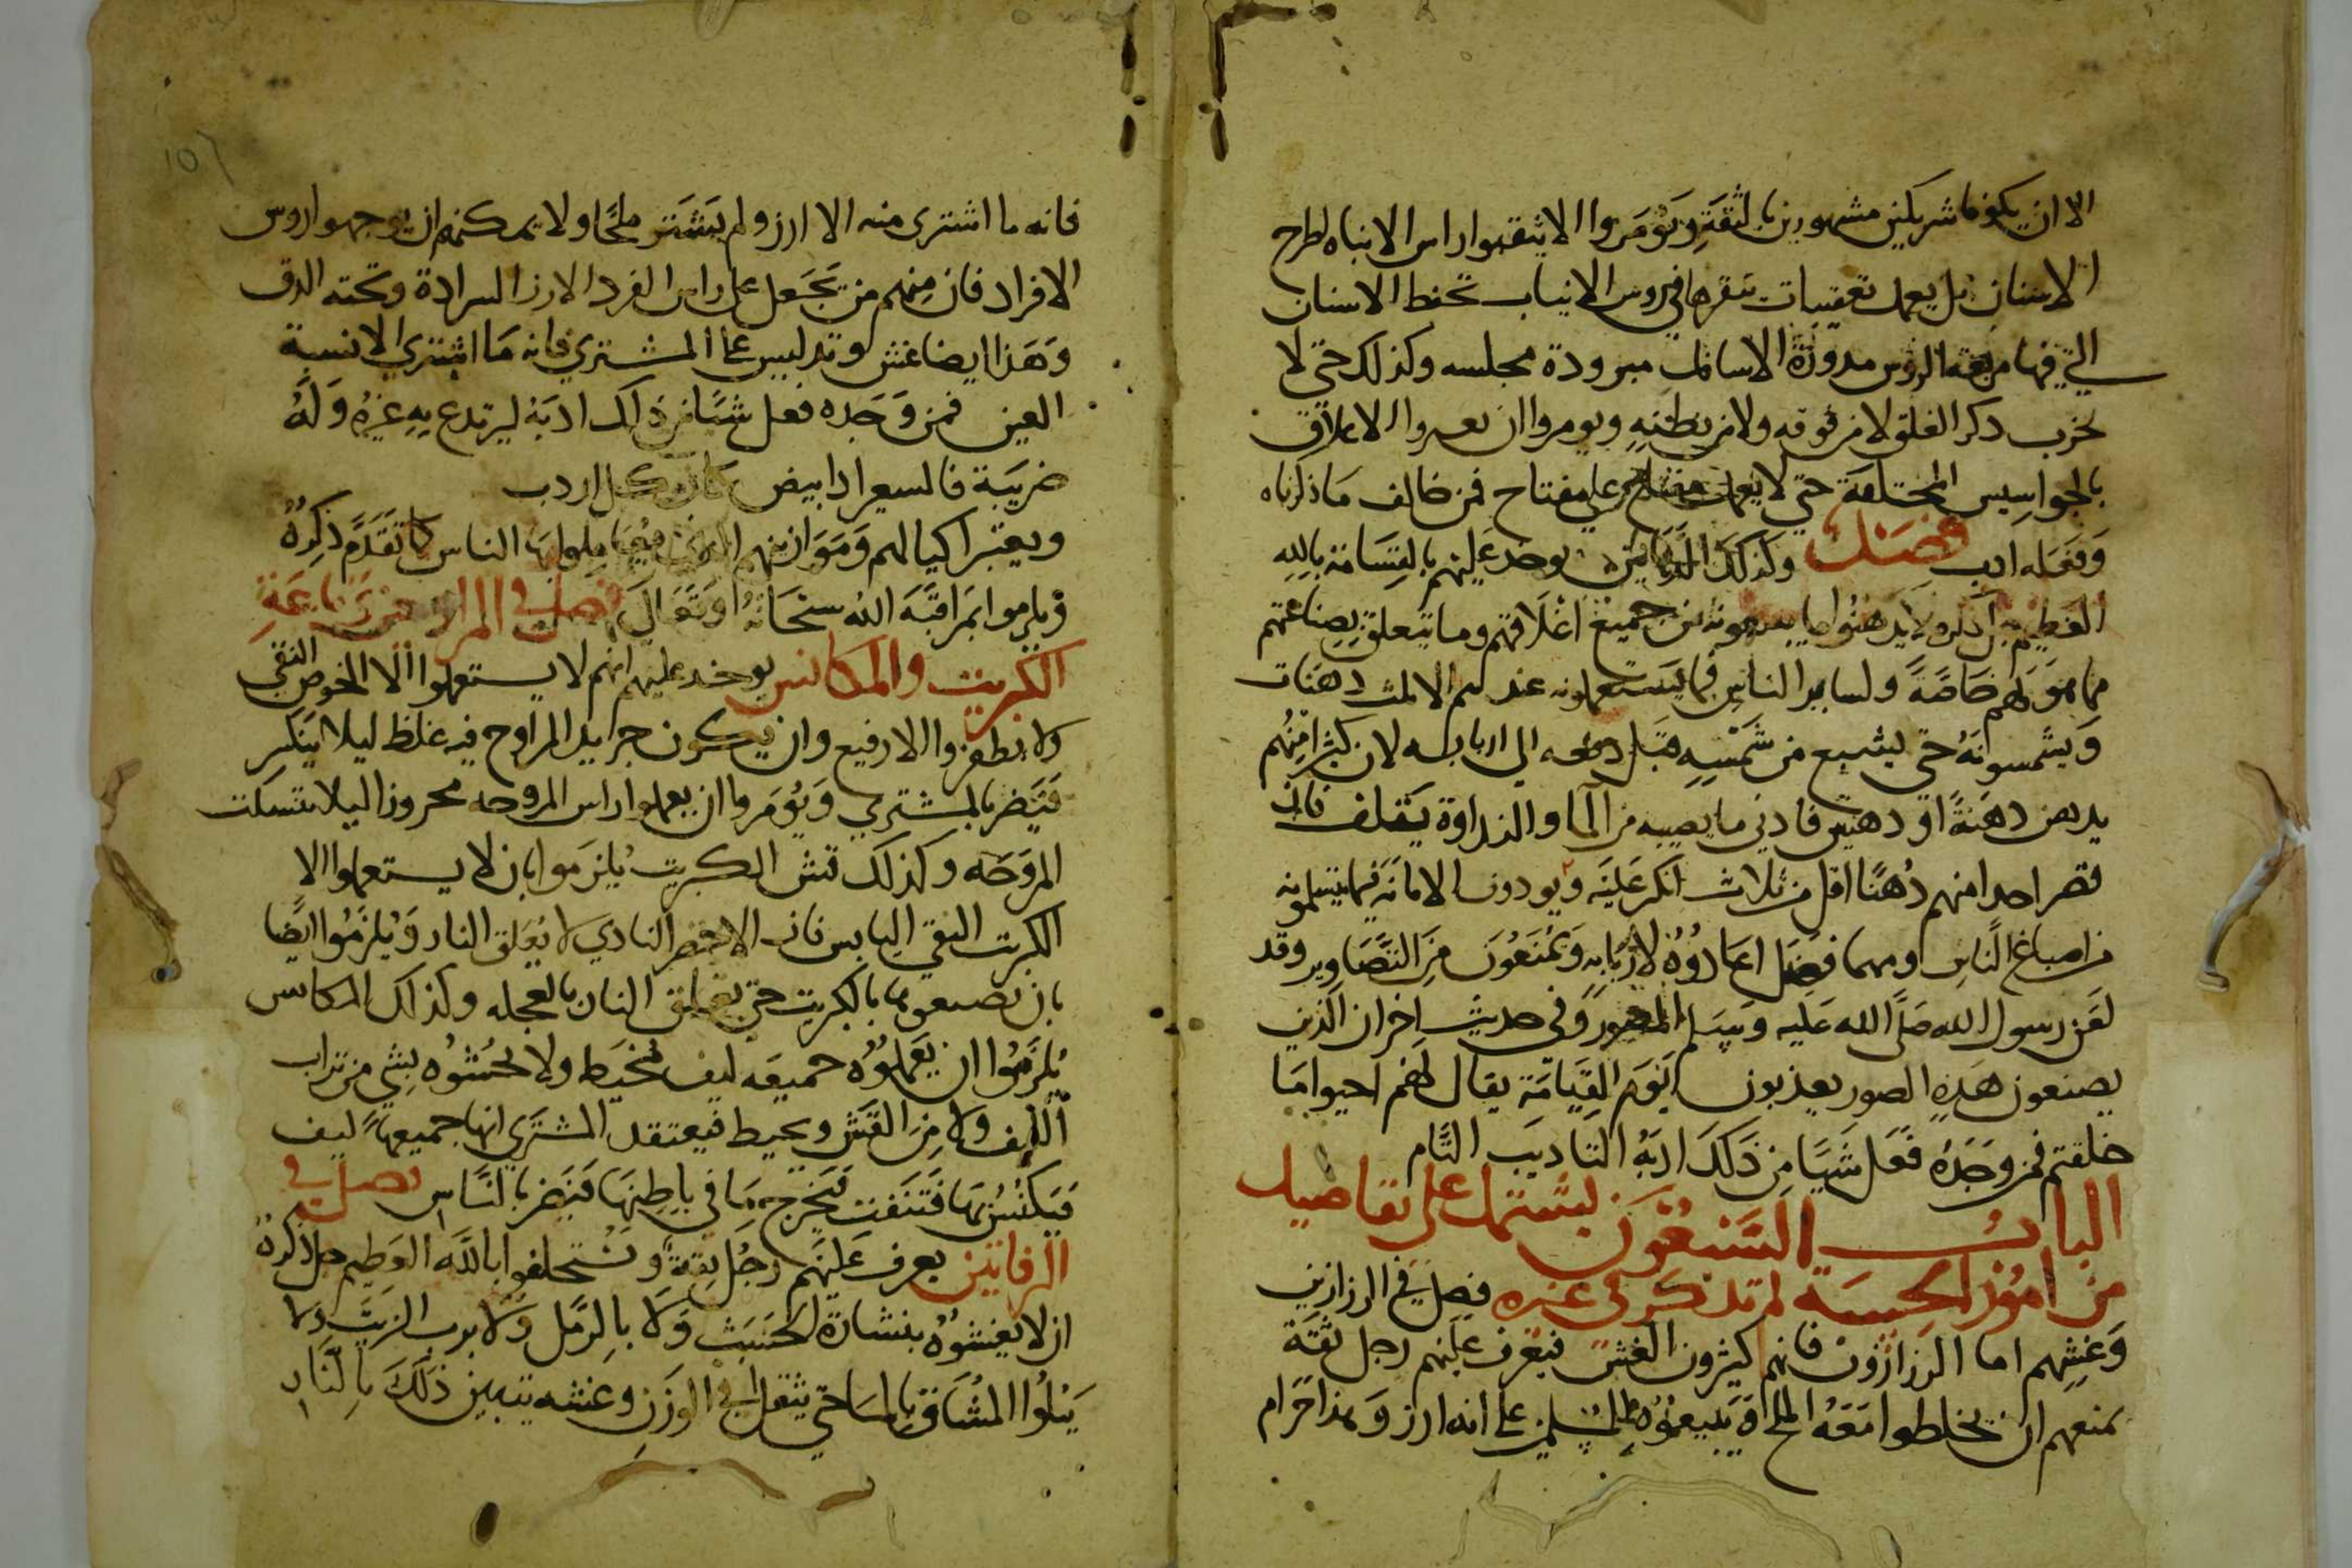 الا ان يكونا شريكين مشهورين بالثقة ويؤمروا الا يثقبوا راس الانياب لطرح
الاسنان بل يعمل تعقيبات تنقرها في روس الانياب تحفظ الاسنان
التي فيها مربعة الروس مدورة الاسافل مبرودة مجلسه وكذلك حتي لا
يخرب دكر الغلق لا من فوقه ولا من بطنه ويومروا ان الاغلاق
بالجواسيس المختلفة حتي لا يعمل مفتاح علي مفتاح فمن خالف ما ذكرناه
وفعله ادب فصل وكذلك يوخد عليهم بالقسامة بالله
العظيم جل ذكره لا يدهنوا ما يدهنونه من جميع اغلاقهم وما يتعلق بصناعتهم
مما هو لهم خاصة ولساير الناس فما يستعملونه عندهم الا ثلث دهنات
ويشمسونه حتي يشبع من شمسه قبل دفعه الي اربابه لان كثيرا منهم
يدهن دهنة او دهنتين فادني ما يصيبه من الما والنداوة يتقلف فان
قصر احدا منهم دهنا اقل من ثلاث انكر عليه ويودون الامانة فيما يتسلمونه
من اصباغ الناس ومهما فضل اعادوه لاربابه ويمنعون من التصاوير وقد
لعن رسول الله صلي الله عليه وسلم المصور وفي حديث اخر ان الذين
يصنعون هذه الصور يعذبون يوم القيامة يقال لهم احيوا ما
خلقتم فمن وجده فعل شيا من ذلك ادبه التاديب التام
الباب السبعون يشتمل علي تفاصيل
من امور الحسبة لم تذكر في غيره فصل في الرزازين
وغشهم اما الرزازون فانهم كثيرون الغش فيعرف عليهم رجل ثقة
يمنعهم ان يخلطوا معه الملح او يبيعوه للمسلمين علي انه ارز وهذا حرام
فانه ما اشترى منه الا ارز ولم يشتر ملحا ولا يمكنهم ان يوجهوا روس
الافراد فان منهم من يجعل على راس الفرد الارز السرادة وتحته الدق
وهذا ايضا غش وتدليس علي المشتري فانه ما اشتري الا نسبة
العين فمن وجده فعل شيا من ذلك ادبه ليرتدع به غيره وله
ضريبة فالسعر اذا بيض كان كل اردب
ويعتبر اكيالهم وموازينهم الذي يعاملوا بها الناس كما تقدم ذكره
ويلزموا بمراقبة الله سبحانه وتعالي فصل في المراوحيين وباعة
الكبريت والمكانس يوخد عليهم انهم لا يستعملوا الا الخوص النقي
ولا يظفروا الا رفيع وان يكون جرايد المراوح فيه غلظ ليلا ينكسر
فيضر بالمشتري ويؤمروا ان يعملوا راس المروحه محروزا ليلا تتسكت
المروحه وكذلك قش الكبريت يلزموا بان لا يستعملوا الا
الكبريت النقي اليابس فان الاخضر النادي لا يعلق النار ويلزموا ايضا
بان يصبغوها بالكبريت حتي يعلق النار بالعجله وكذلك المكانس
يلزموا ان يعملوه جميعه ليف مخيط ولا يحشوه بشي من تراب
الليف ولا من القش ويخيط فيعتقد المشتري انها جميعها ليف
فيكنس بها فتنفت فيخرج ما في باطنها فيضر بالناس فصل في
الزفاتين يعرف عليهم رجل ثقة ويستحلفوا بالله العظيم جل ذكره
ان لا يغشوه بنشارة الخشب ولا بالرمل ولا بدرب الزيت ولا
يبلوا المشاق بالما حتي يثقل في الوزن وغشه يتبين ذلك بالنار